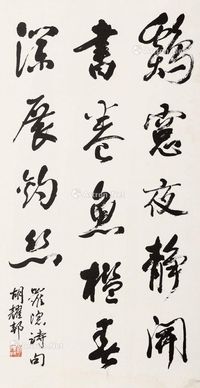 鷄窻夜靜開
書卷魚檻春
深展釣絲
羅隱詩句
胡耀邦